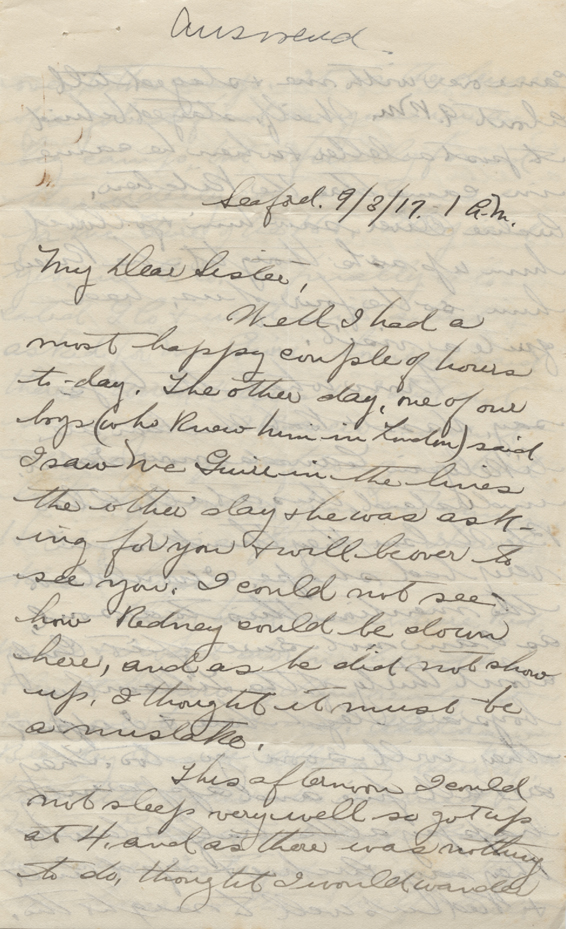 Answered
Seaford. 9/3/17. 1 A.M.
My Dear Sister,
Well I had a
most happy couple of hours
to-day. The other day, one of our
boys (who knew him in London) said
I saw Mc Guire in the lines
the other day & he was ask-
ing for you & will be over to
see you. I could not see
how Rodney could be down
here, and as he did not show
up, I thought it must be
a mistake.
This afternoon I could
not sleep very well so got up
at 4, and as there was nothing
to do, thought I would wander